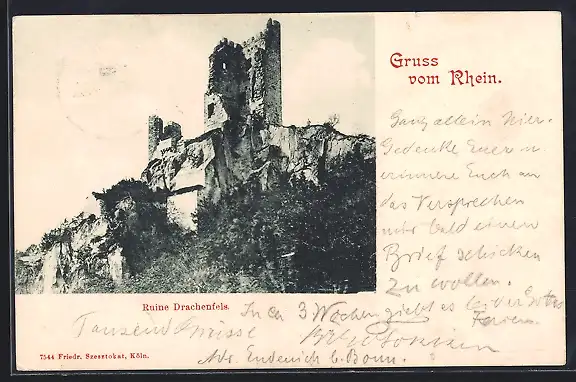 Gruss
vom Rhein.
Ganz allein hier.
Gedenke Euer u.
erinnere Euch an
das Versprechen
mir bald einen
Brief schicken
zu wollen.
In ca 3 Wochen giebt es
Ferien.
Ruine Drachenfels.
Tausend Küsse
Adr. Endenich b. Bonn.
7544 Friedr. Szesztokat, Köln.